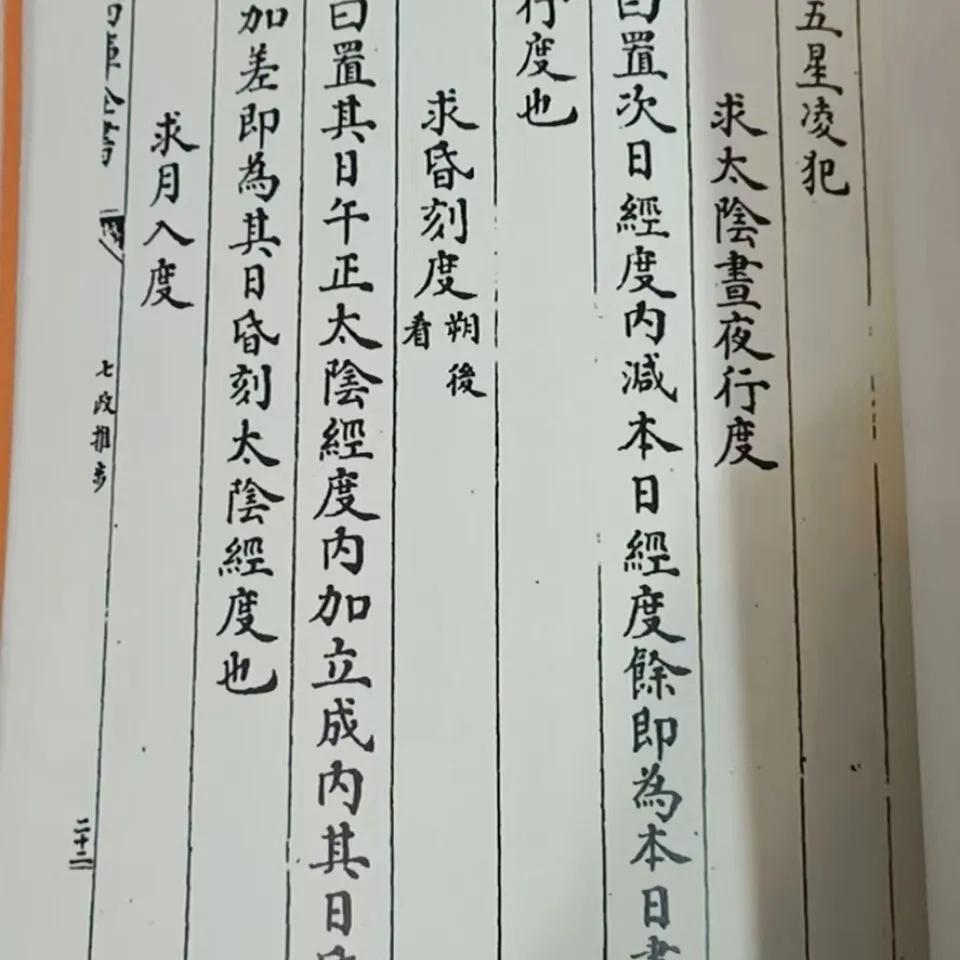 五星凌犯
求太陰晝夜行度
曰置次日經度內減本日經度餘即為本日晝
行度也
求昏刻度朔後看
曰置其日午正太陰經度內加立成內其日昏
加差即為其日昏刻太陰經度也
求月入度
庫全書
七政推步
二十二